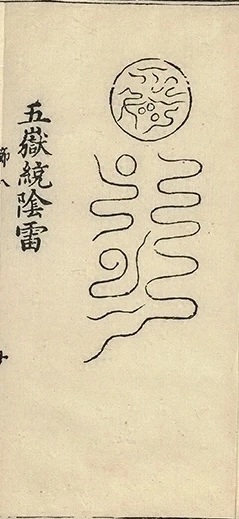 五嶽統陰雷